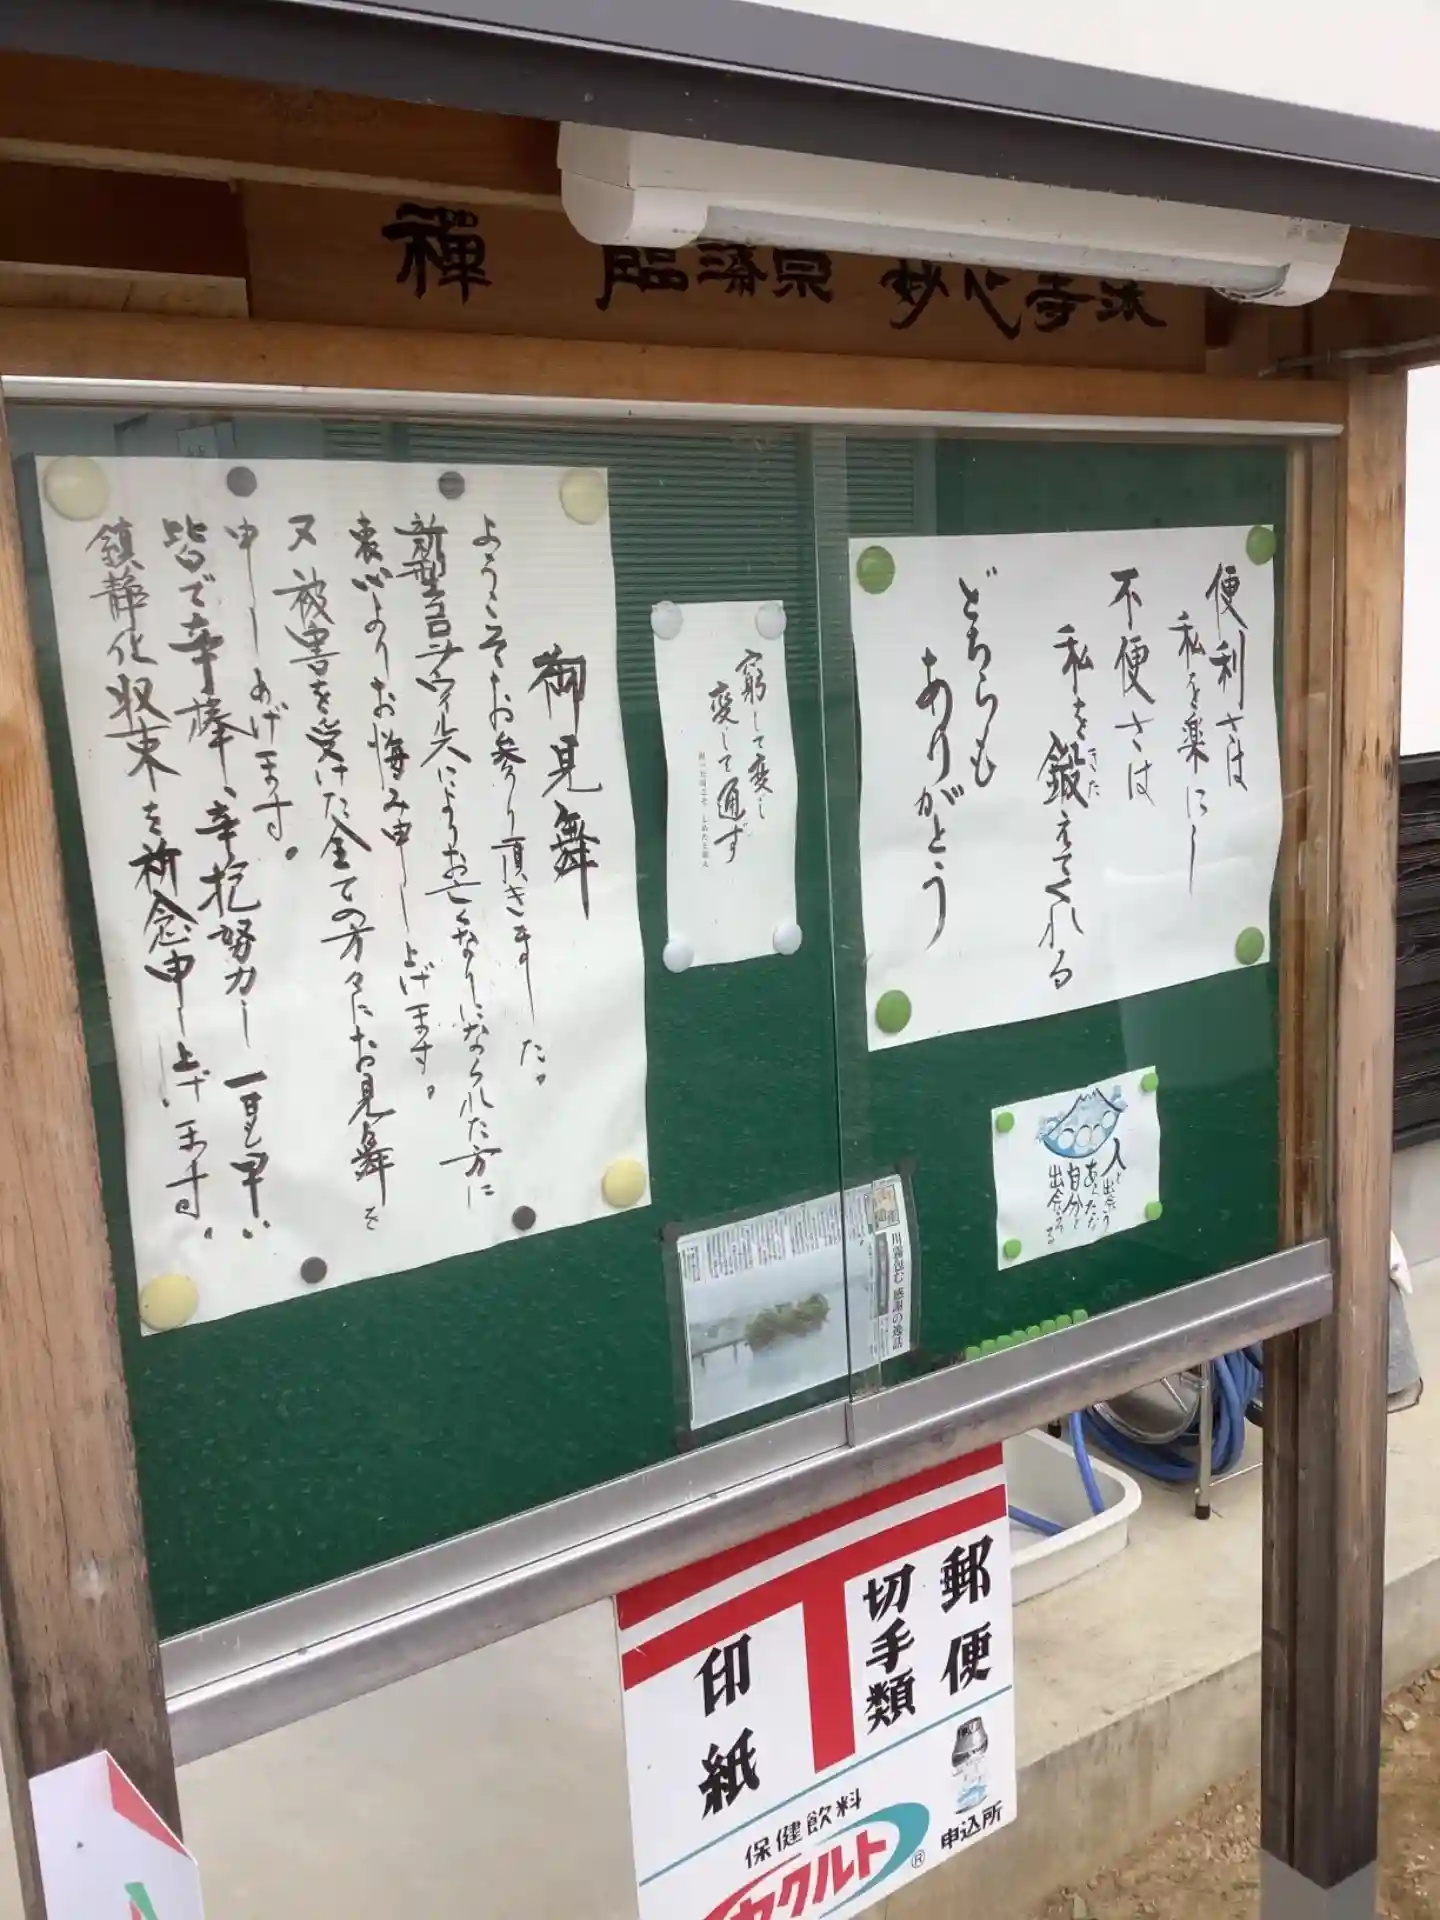 禅 臨済宗 妙心寺派
便利さは
私を楽にし
不便さは
私を鍛えてくれる
きた
どちらも
ありがとう
窮して変じ
変じて通ず
御見舞
ようこそお参り頂きました。
新型コロナウィルスによりお亡くなりになられた方に
衷心よりお悔み申し上げます。
又被害を受けた全ての方々にお見舞を
申しあげます。
皆で辛棒、辛抱努力し一日も早い
鎮静化収束を祈念申し上げます。
人と出会う
あらたな
自分と
出会える
川霧包む 感謝の逸話
郵便
切手類
印紙
保健飲料
ヤクルト®
申込所